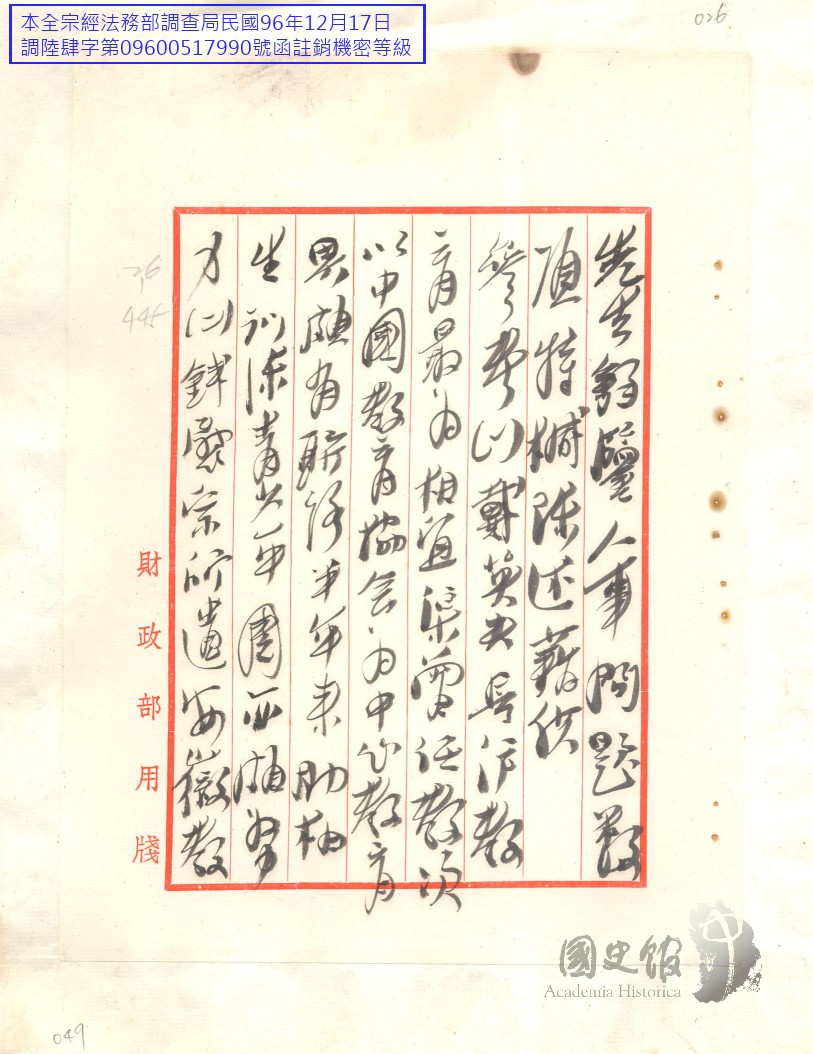 本全宗經法務部調查局民國96年12月17日
調陸肆字第09600517990號函註銷機密等級
026
先生鈞鑒人事問題数
項特椷陳述藉供
參考(一)戴英夫長滬教
育最為相宜渠曾任教次
以中國教育協会為中心教育
界頗有聯絡半年來助柏
生訓練青少年團亦頗努
力(二)錢慰宗所遺安徽教
財政部用牋
26
445
國史館
Academia Historica
049